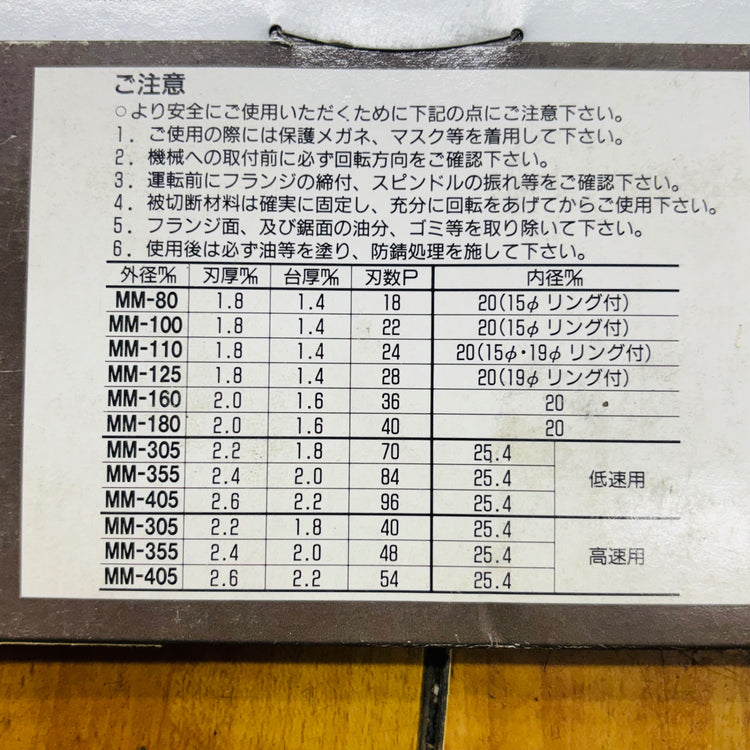 ご注意
○より安全にご使用いただくために下記の点にご注意下さい。
1. ご使用の際には保護メガネ、マスク等を着用して下さい。
2. 機械への取付前に必ず回転方向をご確認下さい。
3. 運転前にフランジの締付、スピンドルの振れ等をご確認下さい。
4. 被切断材料は確実に固定し、充分に回転をあげてからご使用下さい。
5. フランジ面、及び鋸面の油分、ゴミ等を取り除いて下さい。
6. 使用後は必ず油等を塗り、防錆処理を施して下さい。
外径m/m 刃厚m/m 台厚m/m 刃数P 内径m/m
MM-80 1.8 1.4 18 20(15φリング付)
MM-100 1.8 1.4 22 20(15φリング付)
MM-110 1.8 1.4 24 20(15φ・19φリング付)
MM-125 1.8 1.4 28 20(19φリング付)
MM-160 2.0 1.6 36 20
MM-180 2.0 1.6 40 20
MM-305 2.2 1.8 70 25.4
MM-355 2.4 2.0 84 25.4 低速用
MM-405 2.6 2.2 96 25.4
MM-305 2.2 1.8 40 25.4
MM-355 2.4 2.0 48 25.4 高速用
MM-405 2.6 2.2 54 25.4